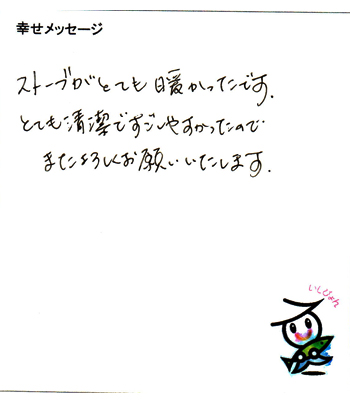 幸せメッセージ
ストーブがとても暖かったです.
とても清潔ですごしやすかったので
またよろしくお願いいたします.